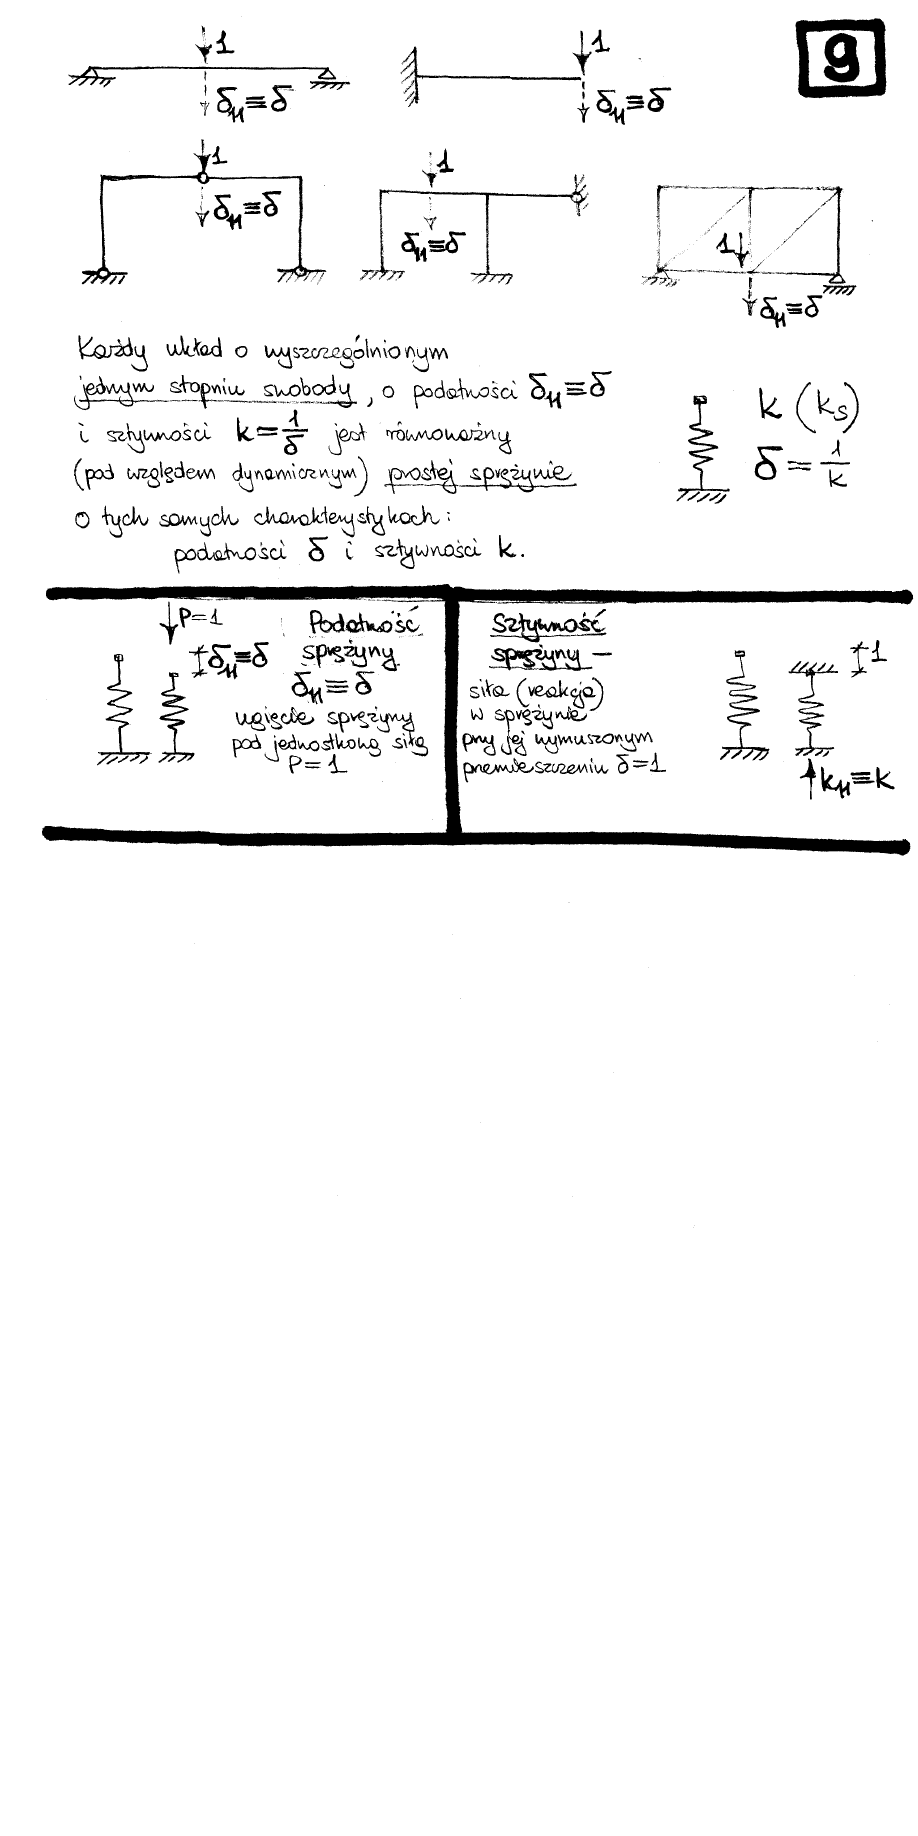 9
1
δ₁₁≡δ
1
δ₁₁≡δ
1
δ₁₁≡δ
1
δ₁₁≡δ
1
δ₁₁≡δ
Każdy układ o wyszczególnionym
jednym stopniu swobody, o podatności δ₁₁≡δ
i sztywności k=1/δ jest równoważny
(pod względem dynamicznym) prostej sprężynie
o tych samych charakterystykach:
podatności δ i sztywności k.
k (kₛ)
δ=1/k
P=1
δ₁₁≡δ
Podatność
sprężyny
δ₁₁≡δ
ugięcie sprężyny
pod jednostkową siłą
P=1
Sztywność
sprężyny –
siła (reakcja)
w sprężynie
przy jej wymuszonym
przemieszczeniu δ=1
1
k₁₁≡k